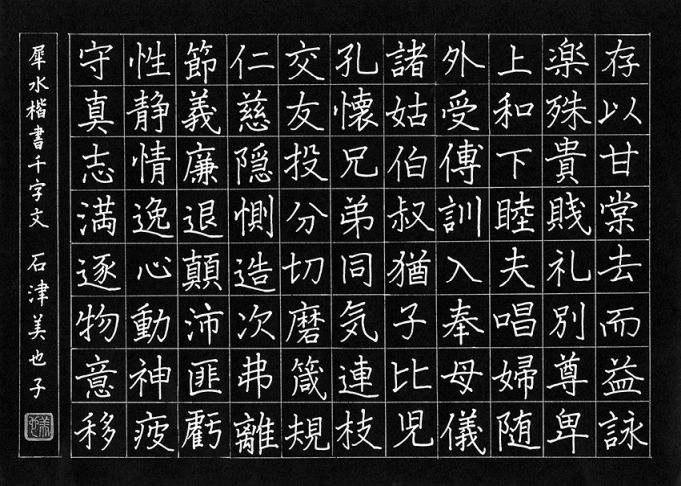 存以甘棠去而益詠
楽殊貴賎礼別尊卑
上和下睦夫唱婦随
外受傅訓入奉母儀
諸姑伯叔猶子比児
孔懐兄弟同気連枝
交友投分切磨箴規
仁慈隠惻造次弗離
節義廉退顛沛匪虧
性静情逸心動神疲
守真志満逐物意移
犀水楷書千字文 石津美也子